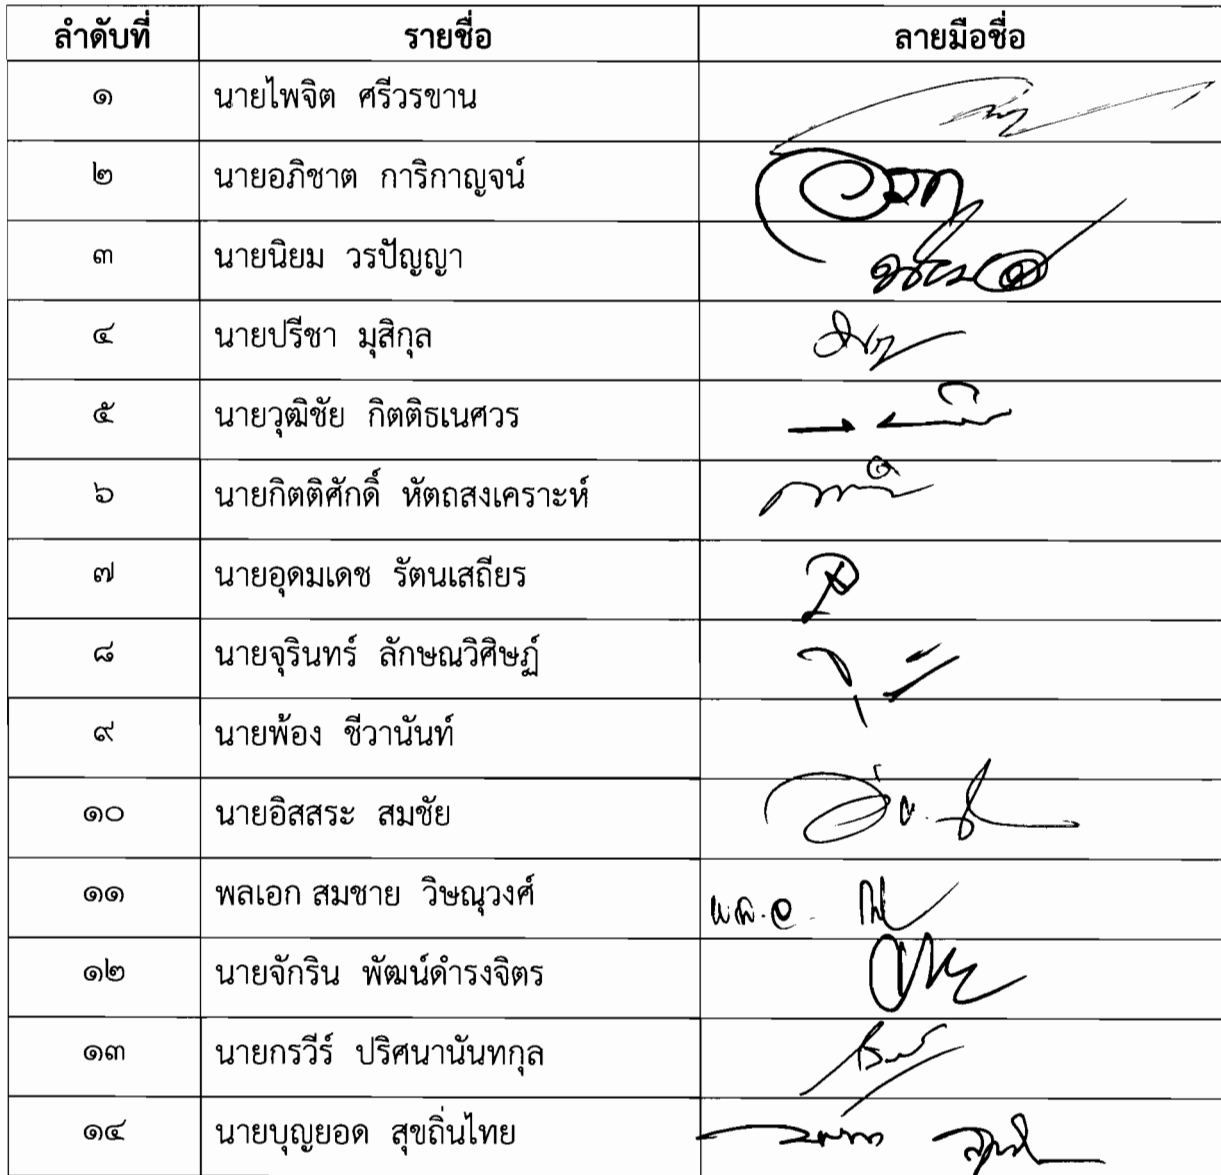 ลำดับที่ รายชื่อ ลายมือชื่อ
๑ นายไพจิต ศรีวรขาน
๒ นายอภิชาต การิกาญจน์
๓ นายนิยม วรปัญญา
๔ นายปรีชา มุสิกุล
๕ นายวุฒิชัย กิตติธเนศวร
๖ นายกิตติศักดิ์ หัตถสงเคราะห์
๗ นายอุดมเดช รัตนเสถียร
๘ นายจุรินทร์ ลักษณวิศิษฏ์
๙ นายพ้อง ชีวานันท์
๑๐ นายอิสสระ สมชัย
๑๑ พลเอก สมชาย วิษณุวงศ์ พล.อ.
๑๒ นายจักริน พัฒน์ดำรงจิตร
๑๓ นายกรวีร์ ปริศนานันทกุล
๑๔ นายบุญยอด สุขถิ่นไทย